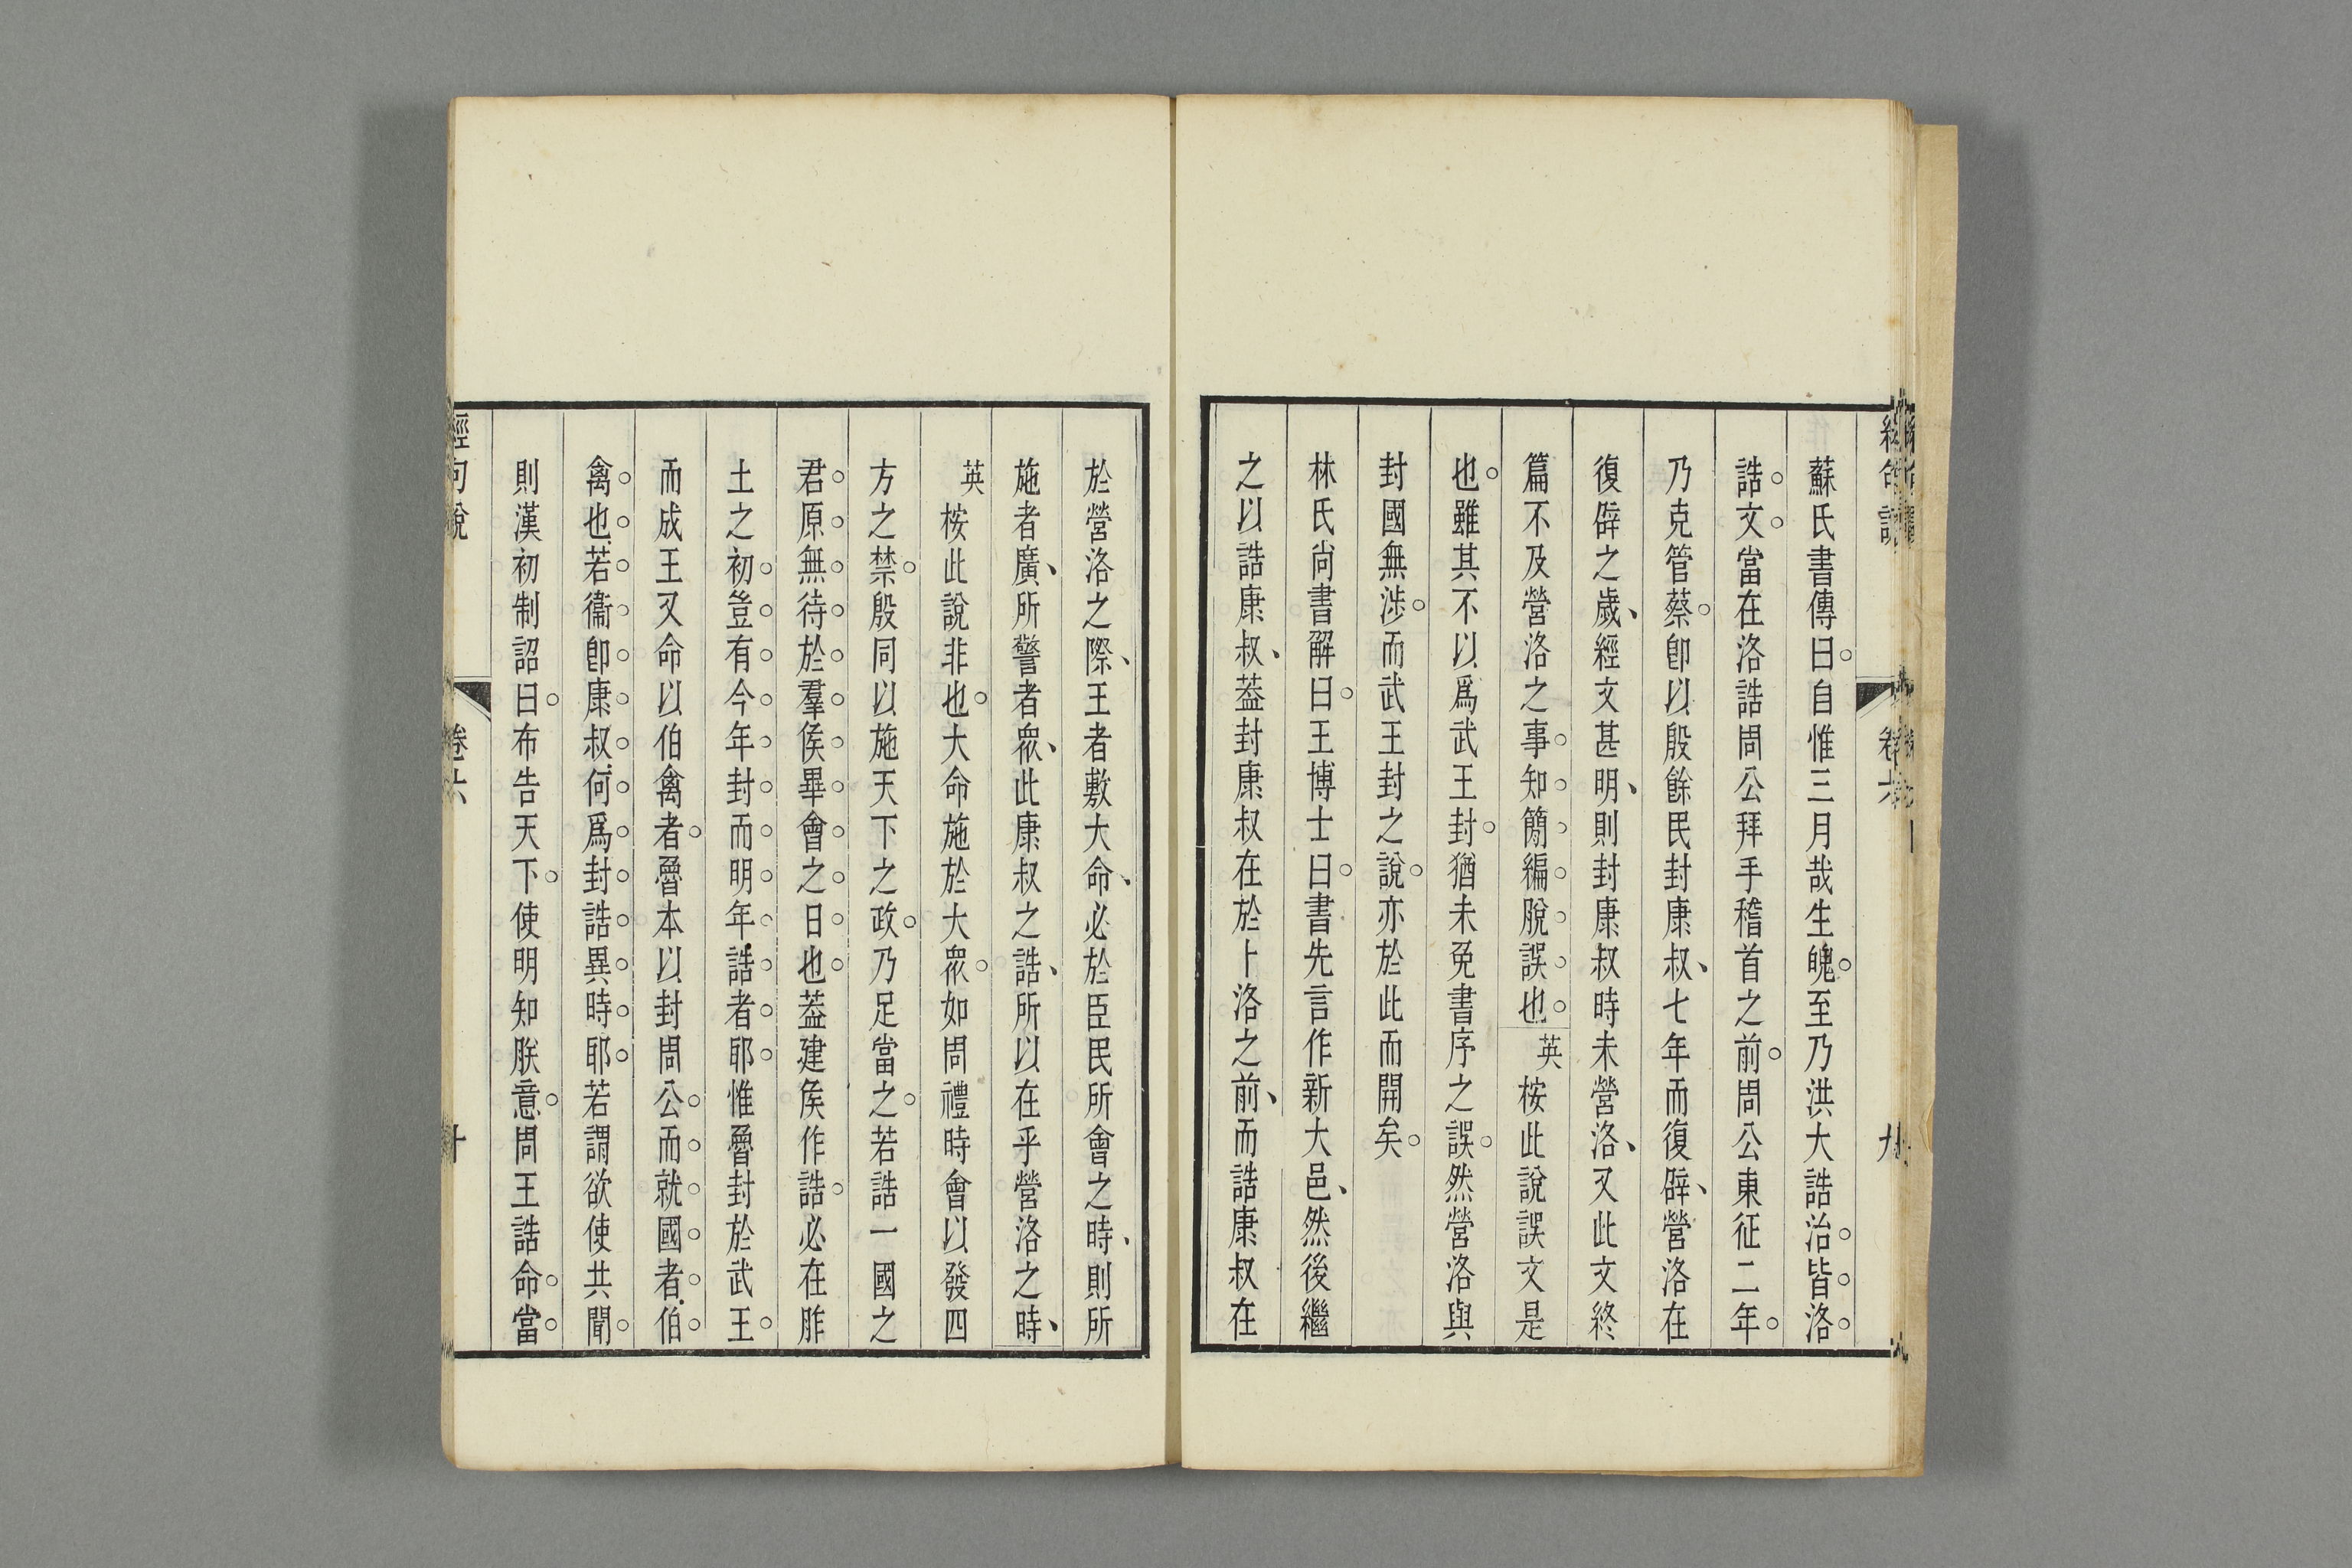 經句說
卷六
九
蘇氏書傳曰自惟三月哉生魄至乃洪大誥治皆洛
誥文當在洛誥周公拜手稽首之前周公東征二年
乃克管蔡卽以殷餘民封康叔七年而復辟營洛在
復辟之歲經文甚明則封康叔時未營洛又此文終
篇不及營洛之事知簡編脫誤也英桉此說誤文是
也雖其不以爲武王封猶未免書序之誤然營洛與
封國無涉而武王封之說亦於此而開矣
林氏尙書解曰王博士曰書先言作新大邑然後繼
之以誥康叔蓋封康叔在於卜洛之前而誥康叔在
於營洛之際王者敷大命必於臣民所會之時則所
施者廣所警者衆此康叔之誥所以在乎營洛之時
英桉此說非也大命施於大衆如周禮時會以發四
方之禁殷同以施天下之政乃足當之若誥一國之
君原無待於羣侯畢會之日也蓋建侯作誥必在胙
土之初豈有今年封而明年誥者耶惟魯封於武王
而成王又命以伯禽者魯本以封周公而就國者伯
禽也若衞卽康叔何爲封誥異時耶若謂欲使共聞
則漢初制詔曰布告天下使明知朕意周王誥命當
經句說
卷六
十